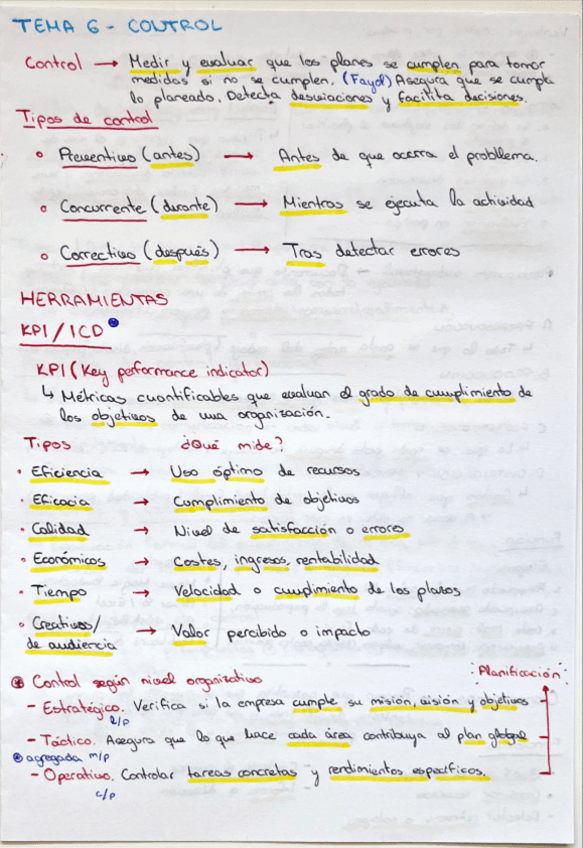 TEMA 6 - CONTROL
Control → Medir y evaluar que los planes se cumplen para tomar
medidas si no se cumplen. (Fayol) Asegura que se cumpla
lo planeado. Detecta desviaciones y facilita decisiones.
Tipos de control
Preventivo (antes) → Antes de que ocurra el problema.
Concurrente (durante) → Mientras se ejecuta la actividad
Correctivo (después) → Tras detectar errores
HERRAMIENTAS
KPI / ICD
KPI (Key performance indicator)
↳ Métricas cuantificables que evaluan el grado de cumplimiento de
los objetivos de una organización.
Tipos ¿Qué mide?
· Eficiencia → Uso óptimo de recursos
· Eficacia → Cumplimiento de objetivos
· Calidad → Nivel de satisfacción o errores
· Económicos → Costes, ingresos, rentabilidad
· Tiempo → Velocidad o cumplimiento de los plazos
· Creativos/
de audiencia → Valor percibido o impacto
Control según nivel organizativo
: Planificación :
- Estratégico. Verifica si la empresa cumple su misión, visión y objetivos
l/p
- Táctico. Asegura que lo que hace cada área contribuya al plan global
agregada m/p
- Operativo. Controlar tareas concretas y rendimientos específicos.
c/p